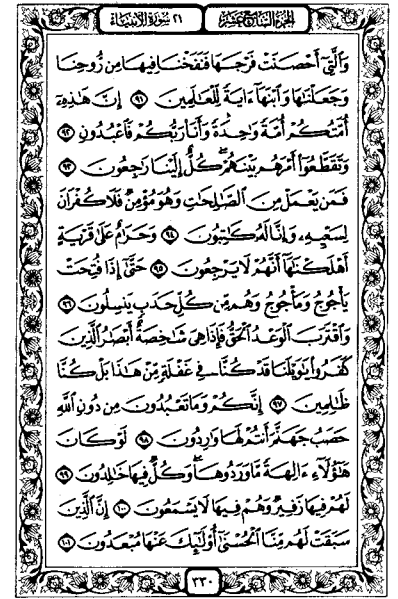 الجزء السابع عشر
٢١ سورة الأنبياء
وَٱلَّتِىٓ أَحْصَنَتْ فَرْجَهَا فَنَفَخْنَا فِيهَا مِن رُّوحِنَا
وَجَعَلْنَٰهَا وَٱبْنَهَآ ءَايَةً لِّلْعَٰلَمِينَ ٩١ إِنَّ هَٰذِهِۦٓ
أُمَّتُكُمْ أُمَّةً وَٰحِدَةً وَأَنَا۠ رَبُّكُمْ فَٱعْبُدُونِ ٩٢
وَتَقَطَّعُوٓا۟ أَمْرَهُم بَيْنَهُمْ ۖ كُلٌّ إِلَيْنَا رَٰجِعُونَ ٩٣
فَمَن يَعْمَلْ مِنَ ٱلصَّٰلِحَٰتِ وَهُوَ مُؤْمِنٌ فَلَا كُفْرَانَ
لِسَعْيِهِۦ وَإِنَّا لَهُۥ كَٰتِبُونَ ٩٤ وَحَرَٰمٌ عَلَىٰ قَرْيَةٍ
أَهْلَكْنَٰهَآ أَنَّهُمْ لَا يَرْجِعُونَ ٩٥ حَتَّىٰٓ إِذَا فُتِحَتْ
يَأْجُوجُ وَمَأْجُوجُ وَهُم مِّن كُلِّ حَدَبٍ يَنسِلُونَ ٩٦
وَٱقْتَرَبَ ٱلْوَعْدُ ٱلْحَقُّ فَإِذَا هِىَ شَٰخِصَةٌ أَبْصَٰرُ ٱلَّذِينَ
كَفَرُوا۟ يَٰوَيْلَنَا قَدْ كُنَّا فِى غَفْلَةٍ مِّنْ هَٰذَا بَلْ كُنَّا
ظَٰلِمِينَ ٩٧ إِنَّكُمْ وَمَا تَعْبُدُونَ مِن دُونِ ٱللَّهِ
حَصَبُ جَهَنَّمَ أَنتُمْ لَهَا وَٰرِدُونَ ٩٨ لَوْ كَانَ
هَٰٓؤُلَآءِ ءَالِهَةً مَّا وَرَدُوهَا ۖ وَكُلٌّ فِيهَا خَٰلِدُونَ ٩٩
لَهُمْ فِيهَا زَفِيرٌ وَهُمْ فِيهَا لَا يَسْمَعُونَ ١٠٠ إِنَّ ٱلَّذِينَ
سَبَقَتْ لَهُم مِّنَّا ٱلْحُسْنَىٰٓ أُو۟لَٰٓئِكَ عَنْهَا مُبْعَدُونَ ١٠١
٣٣٠